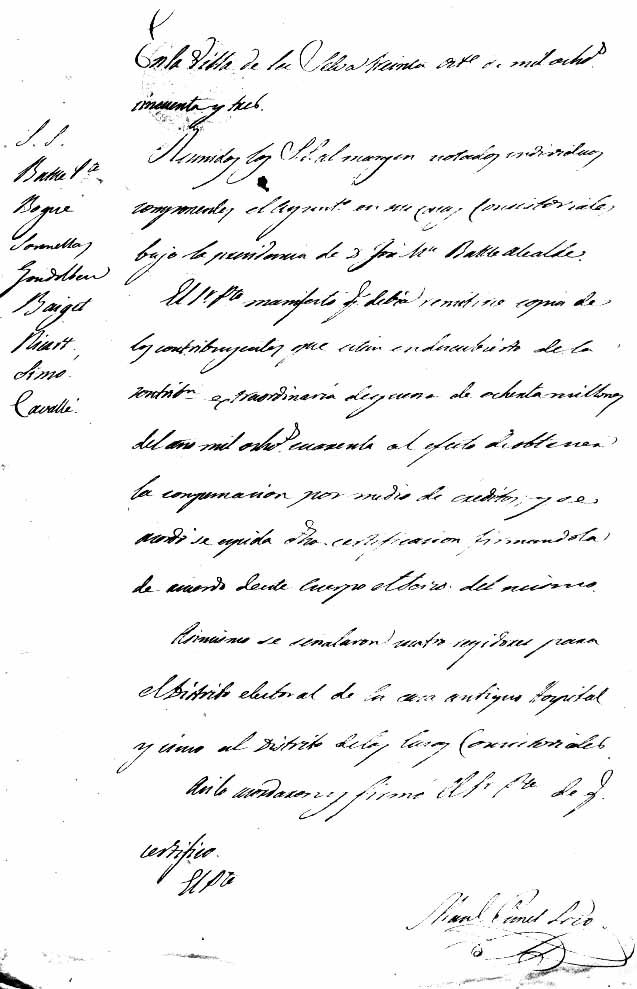 En la Villa de la Selva treinta Octe de mil ochos
cincuenta y tres.
S. S.
Batlle Pte
Bogué
Gondolbeu
Baiget
Ricart
Simo
Cavallé
Reunidos los SS. al margen notados individuos
componentes el Ayuntto en sus casas Consistoriales
bajo la presidencia de D José Ma Batlle Alcalde.
El Sr Pte manifestó q. debia remitirse copia de
los contribuyentes que están en descubierto de la
contribn extraordinaria de guerra de ochenta millones
del año mil ochos cuarenta al efecto de obtener
la compensacion por medio de creditos; y se
acordó se espida dha certificacion firmandola
de acuerdo deeste Cuerpo el Srio. del mismo.
Asimismo se señalaron cuatro regidores para
el Distrito electoral de la casa antiguo Hospital
y cinco al Distrito de las Casas Consistoriales.
Asi lo acordaron y firmó El Sr Pte de q.
certifico.
El Pte